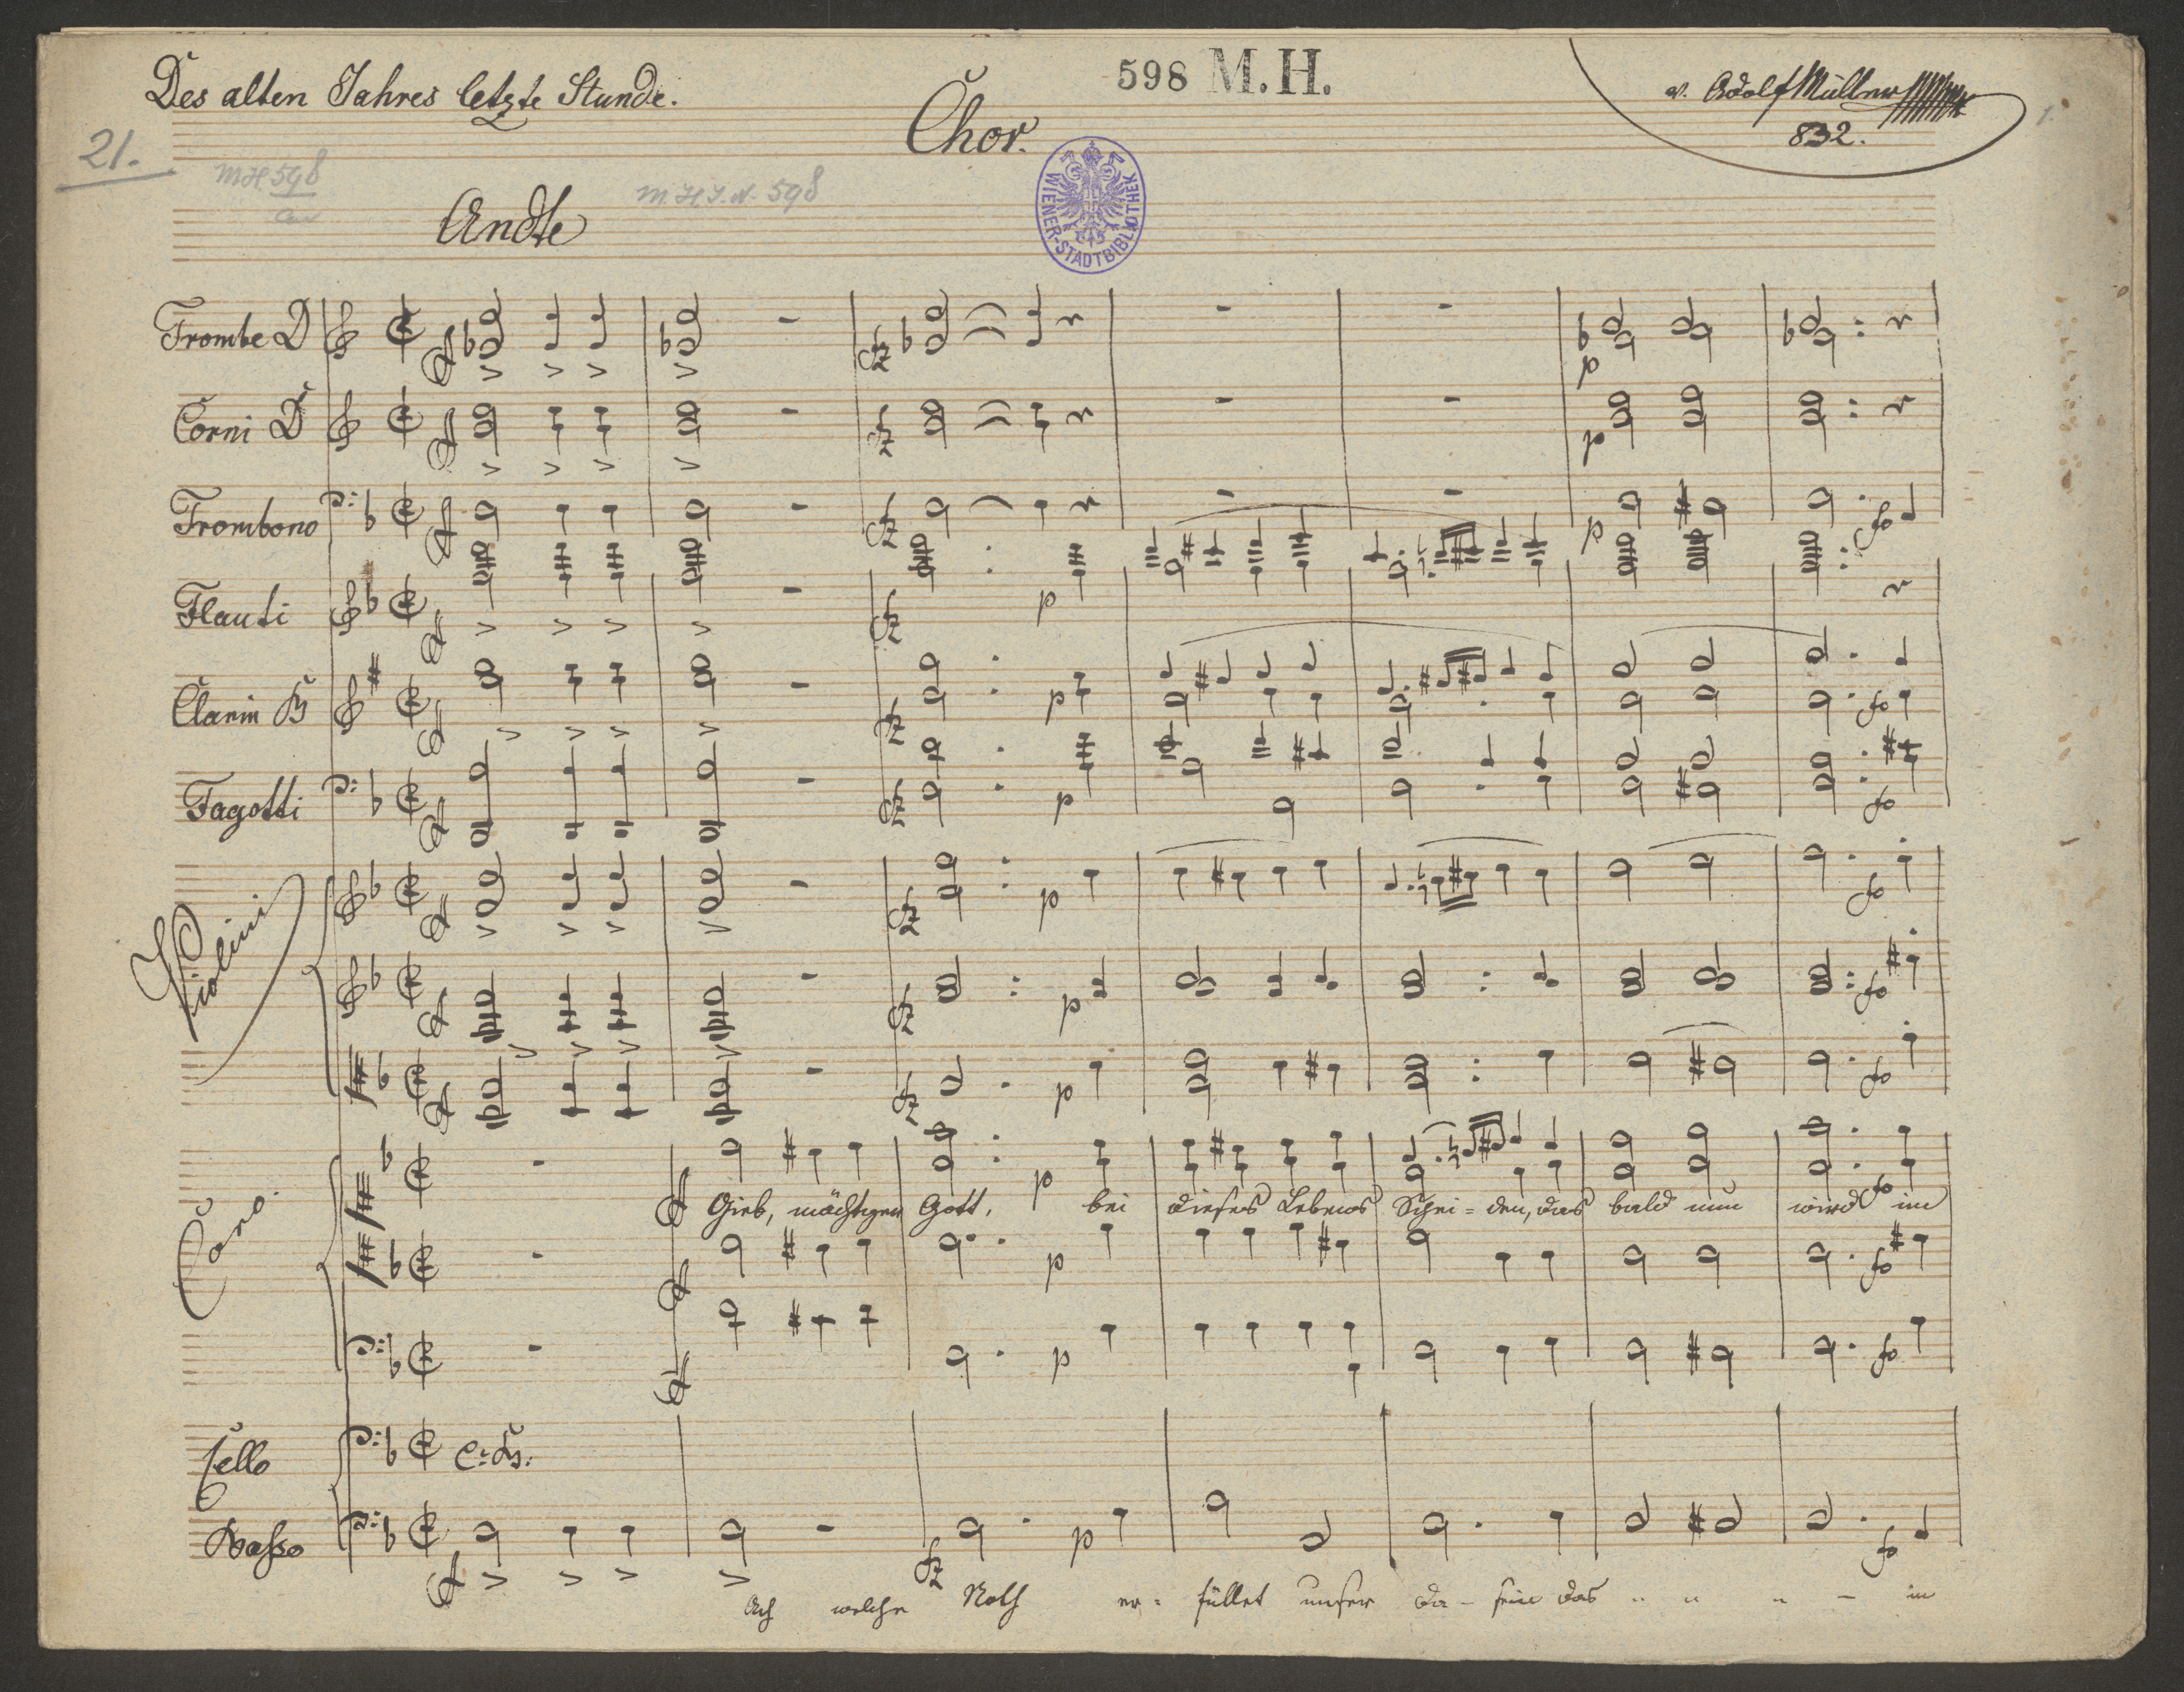 Des alten Jahres letzte Stunde.
598 M.H.
v. Adolf Müller
832.
Chor.
21.
1.
MH 598
M.H.I.N. 598
WIENER-STADTBIBLIOTHEK
Andte
Trombe D
Corni D
Trombono
Flauti
Clarin B
Fagotti
Violini
Coro.
Gieb, mächtiger Gott, bei dieses Lebens Schei = den, das bald nun wird im
Cello
Basso
Ach welche Noth er = füllet unser Da - sein das " " " - in